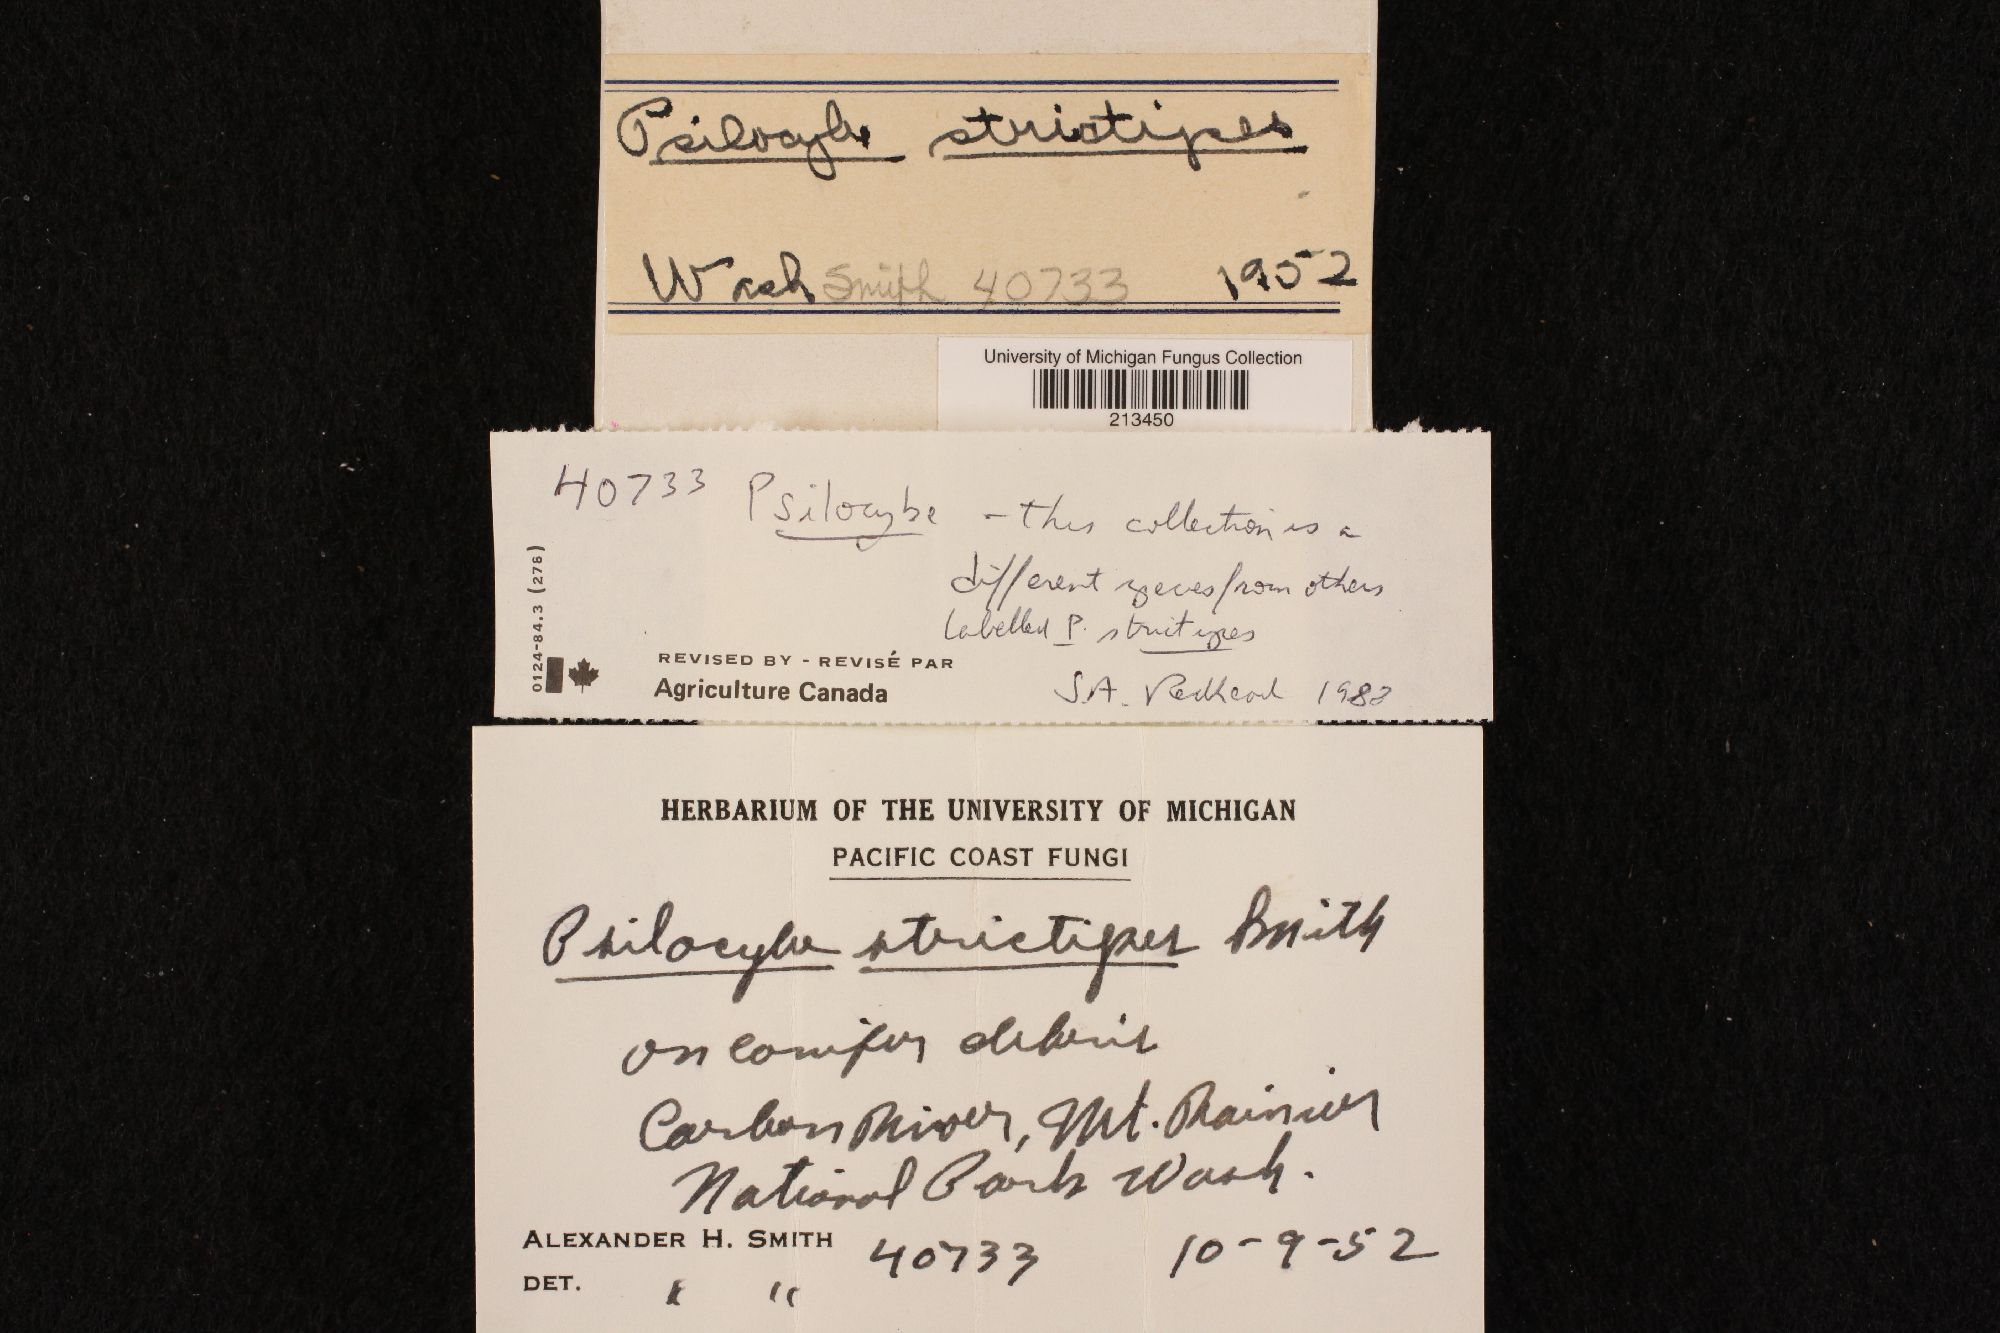 Psilocybe strictipes
Wash Smith 40733 1952
University of Michigan Fungus Collection
213450
40733 Psilocybe - this collection is a
different species from others
labelled P. strictipes
0124-84.3 (278)
REVISED BY - REVISÉ PAR
Agriculture Canada
S.A. Redhead 1982
HERBARIUM OF THE UNIVERSITY OF MICHIGAN
PACIFIC COAST FUNGI
Psilocybe strictipes Smith
on conifer debris
Carbon River, Mt. Rainier
National Park Wash.
ALEXANDER H. SMITH 40733 10-9-52
DET. " "